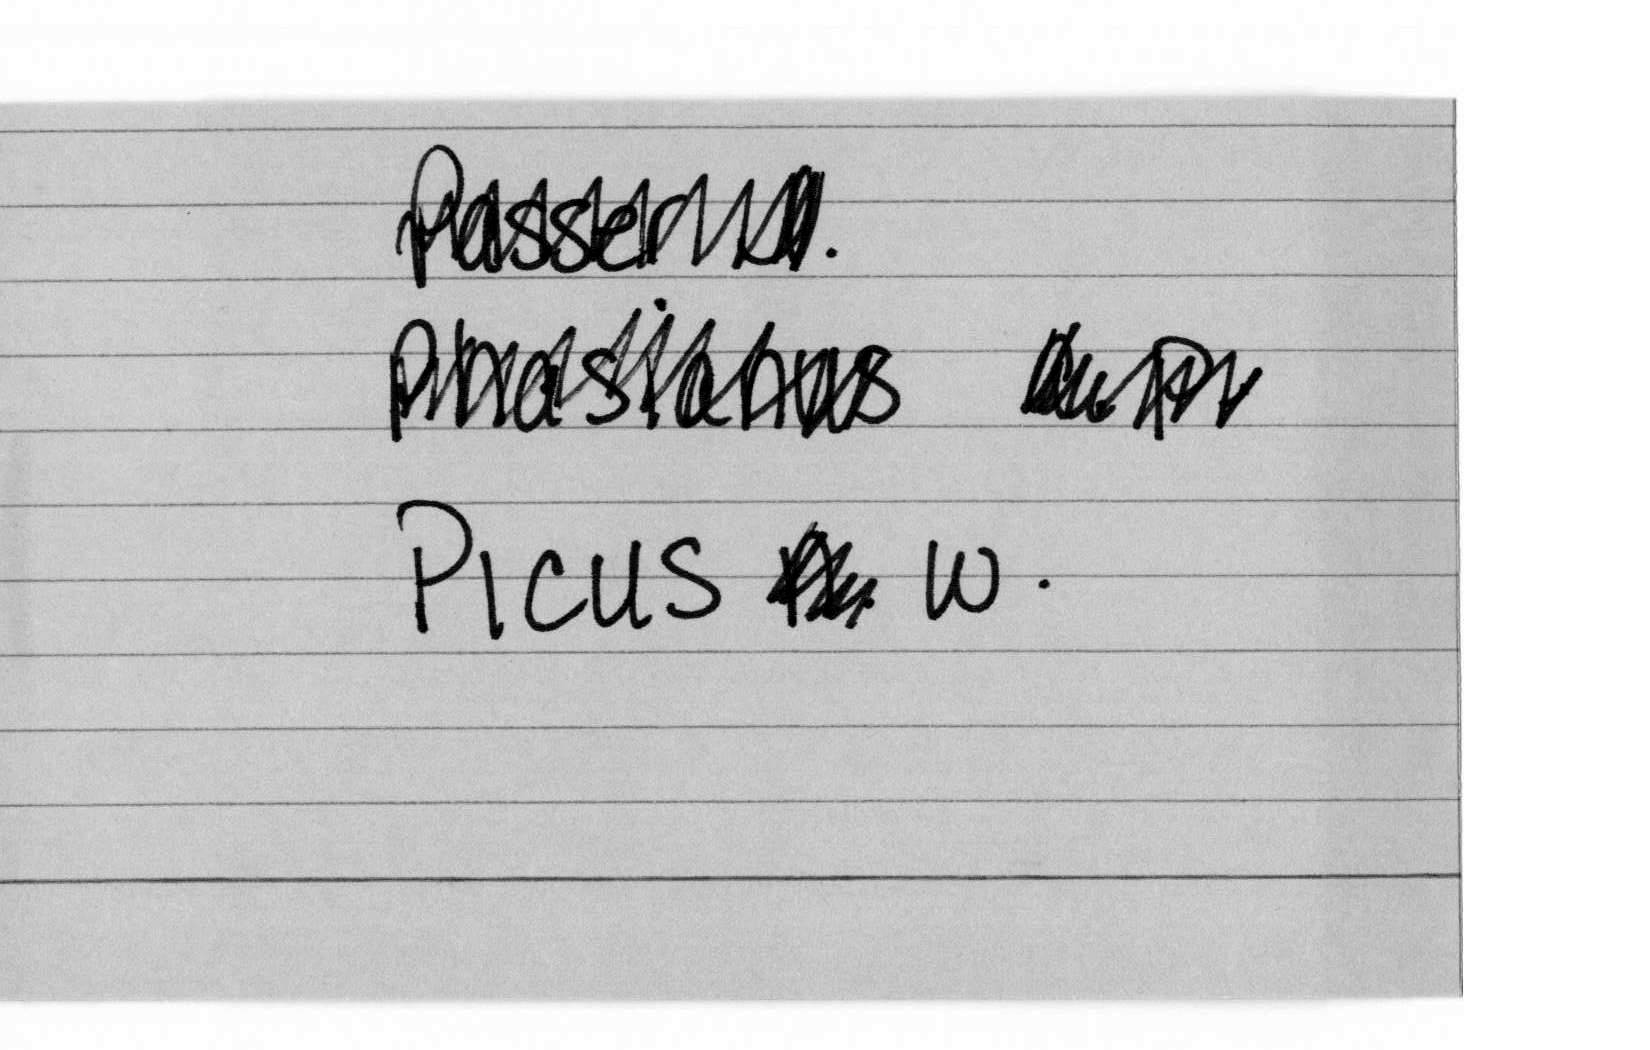 Passer
Phasianus
PICUS W.